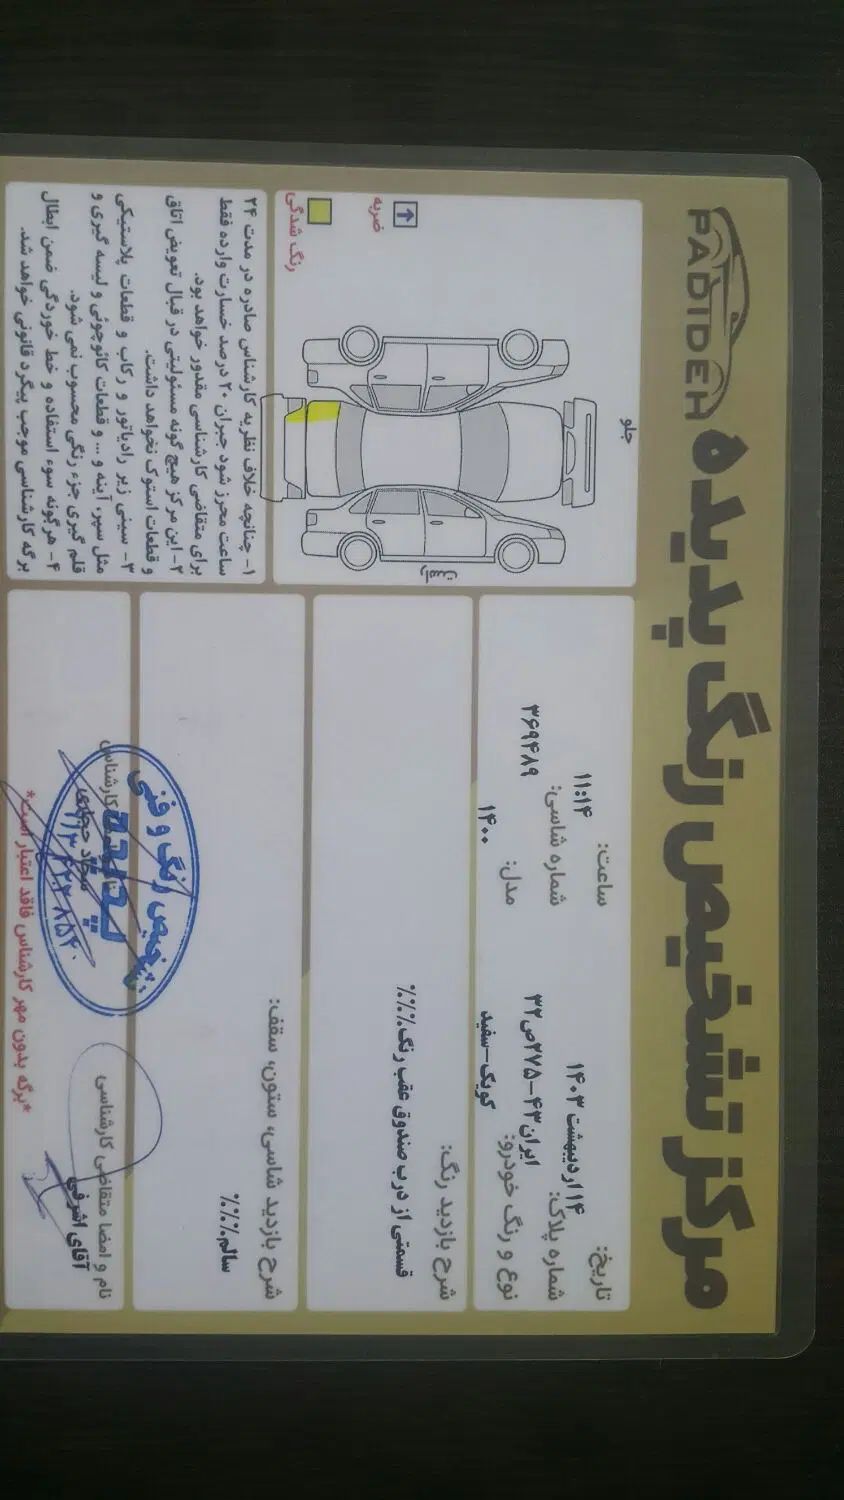 PADIDEH
مرکز تشخیص رنگ پدیده
تاریخ: ۱۴ اردیبهشت ۱۴۰۳
ساعت: ۱۱:۱۴
شماره پلاک: ایران۴۳-۲۷۵ص۳۲
شماره شاسی: ۳۶۹۴۸۹
نوع و رنگ خودرو: کوییک-سفید
مدل: ۱۴۰۰
شرح بازدید رنگ:
قسمتی از درب صندوق عقب رنگ.%%%
شرح بازدید شاسی، ستون، سقف:
سالم.%%%
نام و امضا متقاضی کارشناسی
آقای اشرفی
کارشناس
تشخیص رنگ و فنی
پدیده
*برگه بدون مهر کارشناس فاقد اعتبار است*
جلو
راست
ضربه
رنگ شدگی
۱- چنانچه خلاف نظریه کارشناس صادره در مدت ۲۴
ساعت محرز شود جبران ۲۰ درصد خسارت وارده فقط
برای متقاضی کارشناسی مقدور خواهد بود.
۲- این مرکز هیچ گونه مسئولیتی در قبال تعویض اتاق
و قطعات استوک نخواهد داشت.
۳- سینی زیر رادیاتور و رکاب و قطعات پلاستیکی
مثل سپر، آینه و ... و قطعات کائوچوئی و لیسه گیری و
قلم گیری جزء رنگی محسوب نمی شود.
۴- هرگونه سوء استفاده و خط خوردگی ضمن ابطال
برگه کارشناسی موجب پیگرد قانونی خواهد شد.